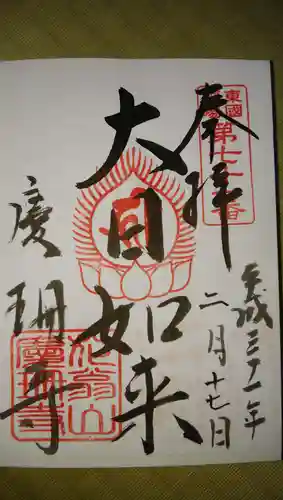 東國
第七
番
奉拝
平成三十一年
二月十七日
大日如来
慶珊寺
花翁山
慶珊寺